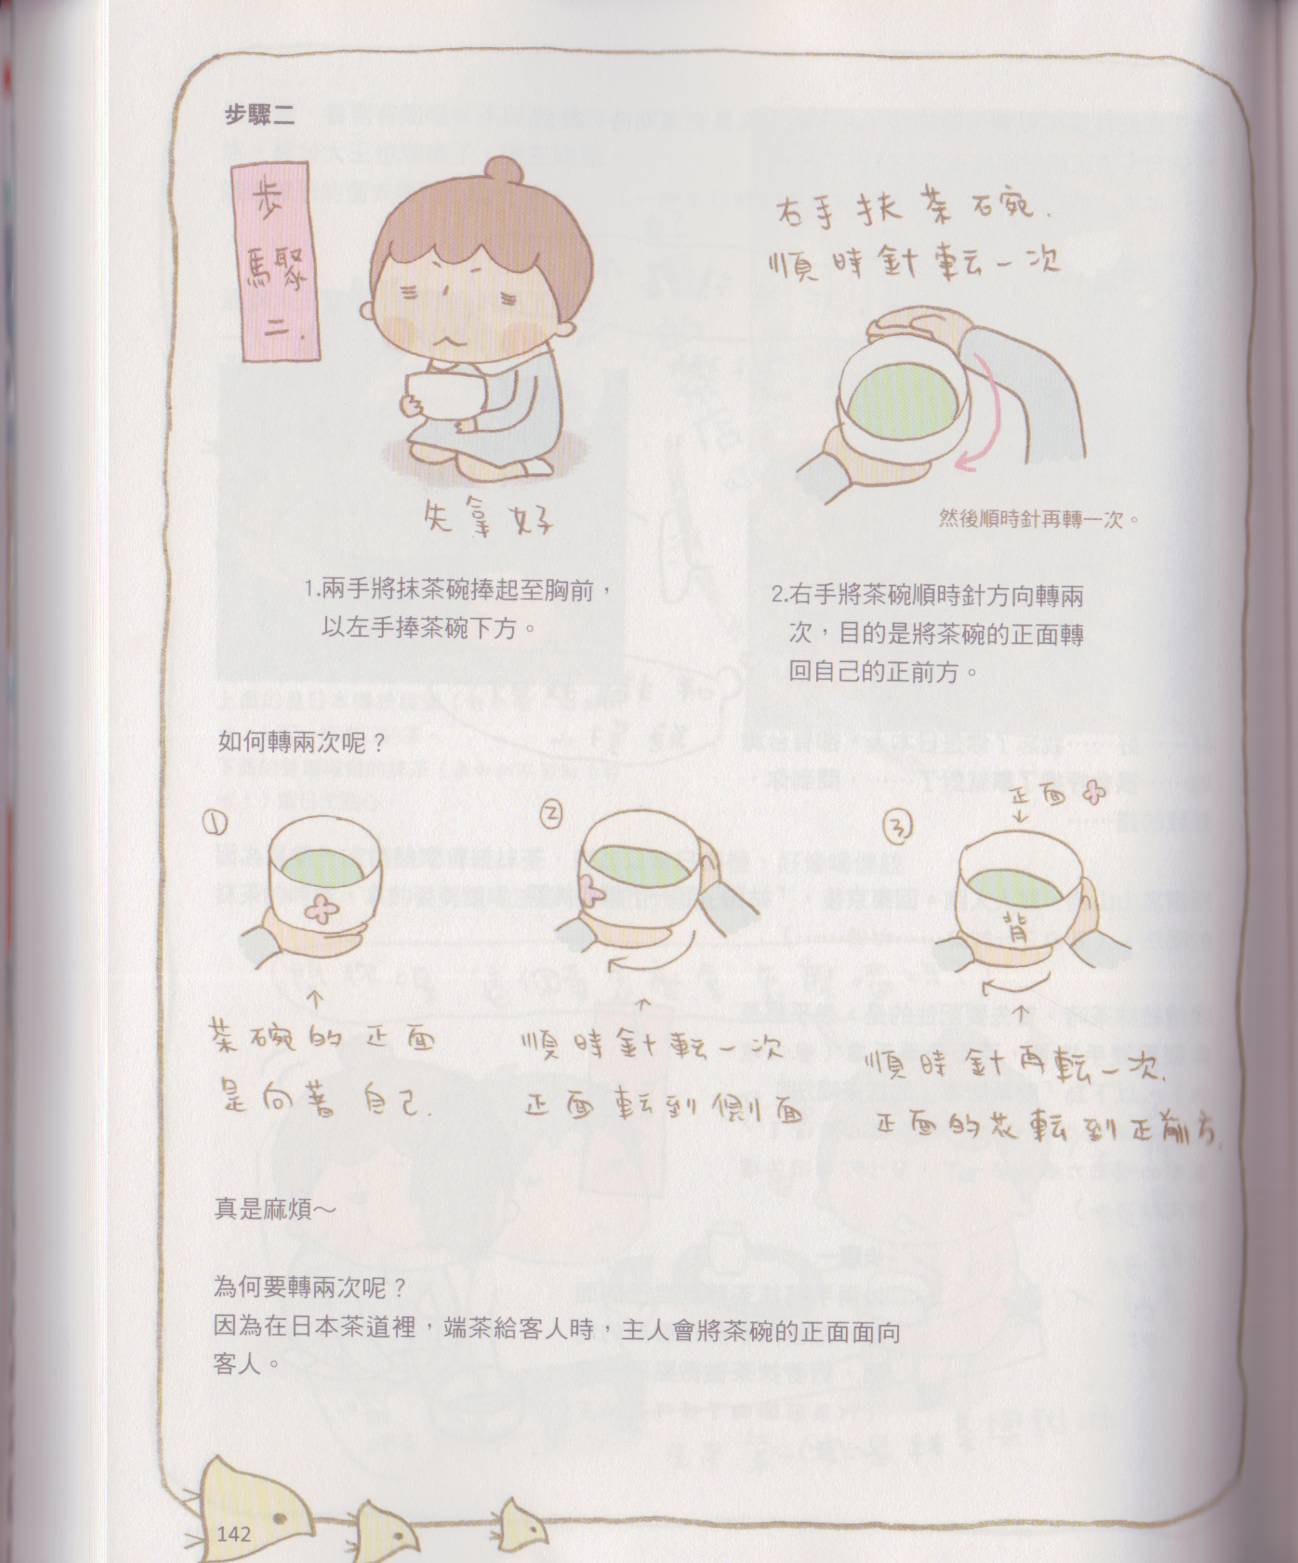 步驟二
步
驟
二.
右手扶茶碗.
順時針転一次
然後順時針再轉一次。
先拿好
1.兩手將抹茶碗捧起至胸前，
以左手捧茶碗下方。
2.右手將茶碗順時針方向轉兩
次，目的是將茶碗的正面轉
回自己的正前方。
如何轉兩次呢？
①
茶碗的正面
是向著自己.
②
順時針転一次
正面転到側面
③
正面
背
順時針再転一次.
正面的花転到正前方.
真是麻煩～
為何要轉兩次呢？
因為在日本茶道裡，端茶給客人時，主人會將茶碗的正面面向
客人。
142